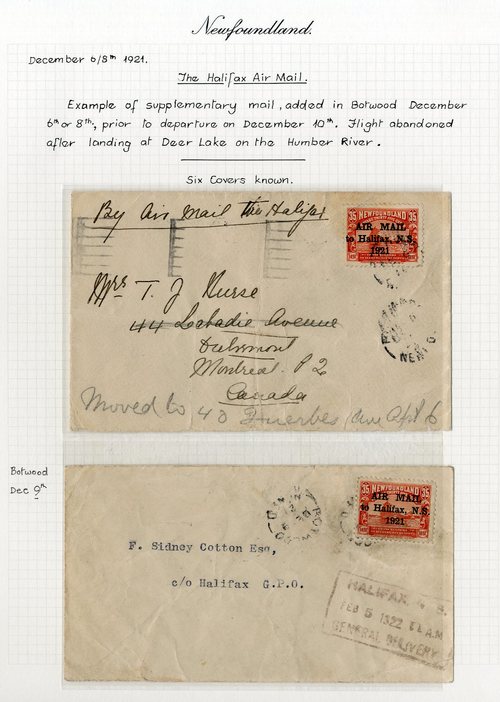 Newfoundland.
December 6/8th 1921.
The Halifax Air Mail.
Example of supplementary mail, added in Botwood December
6th or 8th, prior to departure on December 10th. Flight abandoned
after landing at Deer Lake on the Humber River.
Six Covers known.
By Air Mail the Halifax
35 NEWFOUNDLAND 35
AIR MAIL
to Halifax, N.S.
1921
Mrs T. J Nurse
44 Labadie Avenue
Montreal P 2
Canada
Moved to 40 Ave Apt 6
Botwood
Dec 9th
35 NEWFOUNDLAND 35
AIR MAIL
to Halifax, N.S.
1921
F. Sidney Cotton Esq,
c/o Halifax G.P.O.
HALIFAX N. S.
FEB 5 1922 A.M
GENERAL DELIVERY